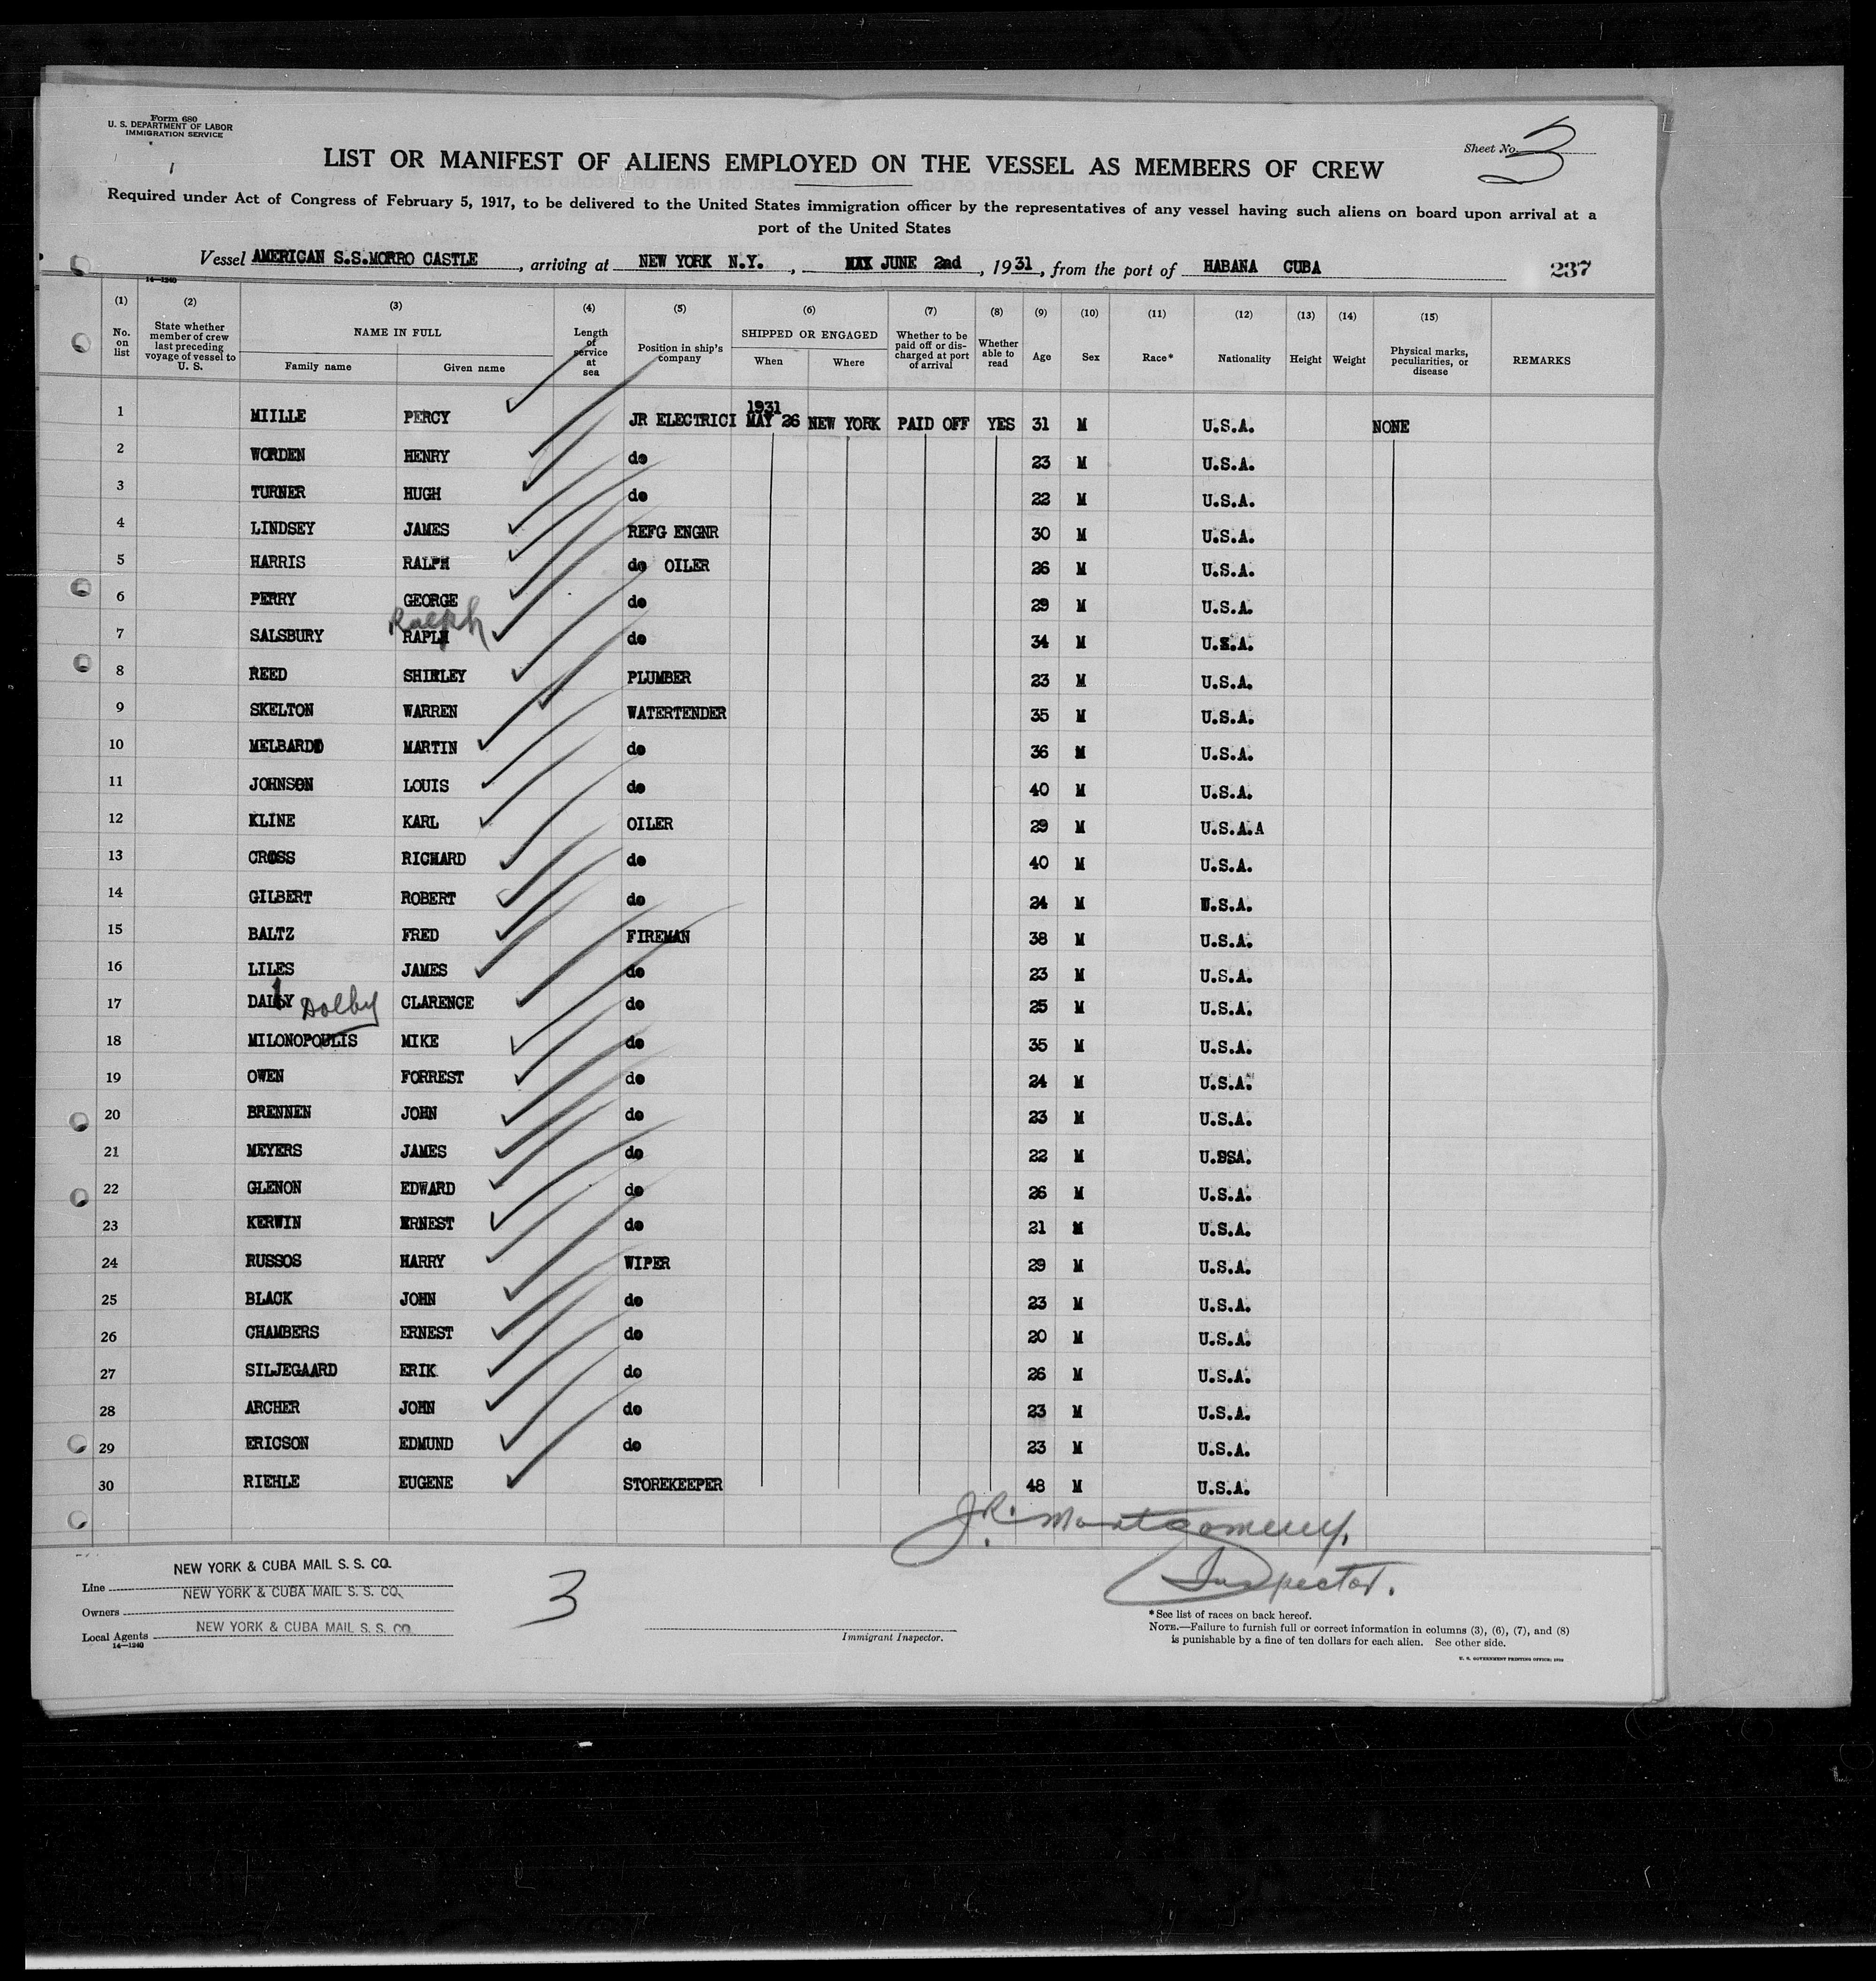 Form 680
U. S. DEPARTMENT OF LABOR
IMMIGRATION SERVICE
Sheet No. 3
LIST OR MANIFEST OF ALIENS EMPLOYED ON THE VESSEL AS MEMBERS OF CREW
Required under Act of Congress of February 5, 1917, to be delivered to the United States immigration officer by the representatives of any vessel having such aliens on board upon arrival at a
port of the United States
Vessel AMERICAN S.S.MORRO CASTLE, arriving at NEW YORK N.Y., JUNE 2nd, 1931, from the port of HABANA CUBA 237
14—1240
(1) (2) (3) (4) (5) (6) (7) (8) (9) (10) (11) (12) (13) (14) (15)
No. on list State whether member of crew last preceding voyage of vessel to U. S. NAME IN FULL Family name Given name Length of service at sea Position in ship's company SHIPPED OR ENGAGED When Where Whether to be paid off or discharged at port of arrival Whether able to read Age Sex Race* Nationality Height Weight Physical marks, peculiarities, or disease REMARKS
1 MIILLE PERCY JR ELECTRICI 1931 MAY 26 NEW YORK PAID OFF YES 31 M U.S.A. NONE
2 WORDEN HENRY do 23 M U.S.A.
3 TURNER HUGH do 22 M U.S.A.
4 LINDSEY JAMES REFG ENGNR 30 M U.S.A.
5 HARRIS RALPH do OILER 26 M U.S.A.
6 PERRY GEORGE do 29 M U.S.A.
7 SALSBURY RAPLH Ralph do 34 M U.S.A.
8 REED SHIRLEY PLUMBER 23 M U.S.A.
9 SKELTON WARREN WATERTENDER 35 M U.S.A.
10 MELBARDO MARTIN do 36 M U.S.A.
11 JOHNSON LOUIS do 40 M U.S.A.
12 KLINE KARL OILER 29 M U.S.A.A
13 CROSS RICHARD do 40 M U.S.A.
14 GILBERT ROBERT do 24 M U.S.A.
15 BALTZ FRED FIREMAN 38 M U.S.A.
16 LILES JAMES do 23 M U.S.A.
17 DALBY Dolby CLARENCE do 25 M U.S.A.
18 MILONOPOULIS MIKE do 35 M U.S.A.
19 OWEN FORREST do 24 M U.S.A.
20 BRENNEN JOHN do 23 M U.S.A.
21 MEYERS JAMES do 22 M U.SSA.
22 GLENON EDWARD do 26 M U.S.A.
23 KERWIN ERNEST do 21 M U.S.A.
24 RUSSOS HARRY WIPER 29 M U.S.A.
25 BLACK JOHN do 23 M U.S.A.
26 CHAMBERS ERNEST do 20 M U.S.A.
27 SILJEGAARD ERIK do 26 M U.S.A.
28 ARCHER JOHN do 23 M U.S.A.
29 ERICSON EDMUND do 23 M U.S.A.
30 RIEHLE EUGENE STOREKEEPER 48 M U.S.A.
J.R. Montgomery.
Inspector.
Line NEW YORK & CUBA MAIL S. S. CO.
Owners NEW YORK & CUBA MAIL S. S. CO.
Local Agents NEW YORK & CUBA MAIL S. S. CO.
14—1240
3
Immigrant Inspector.
*See list of races on back hereof.
NOTE.—Failure to furnish full or correct information in columns (3), (6), (7), and (8)
is punishable by a fine of ten dollars for each alien. See other side.